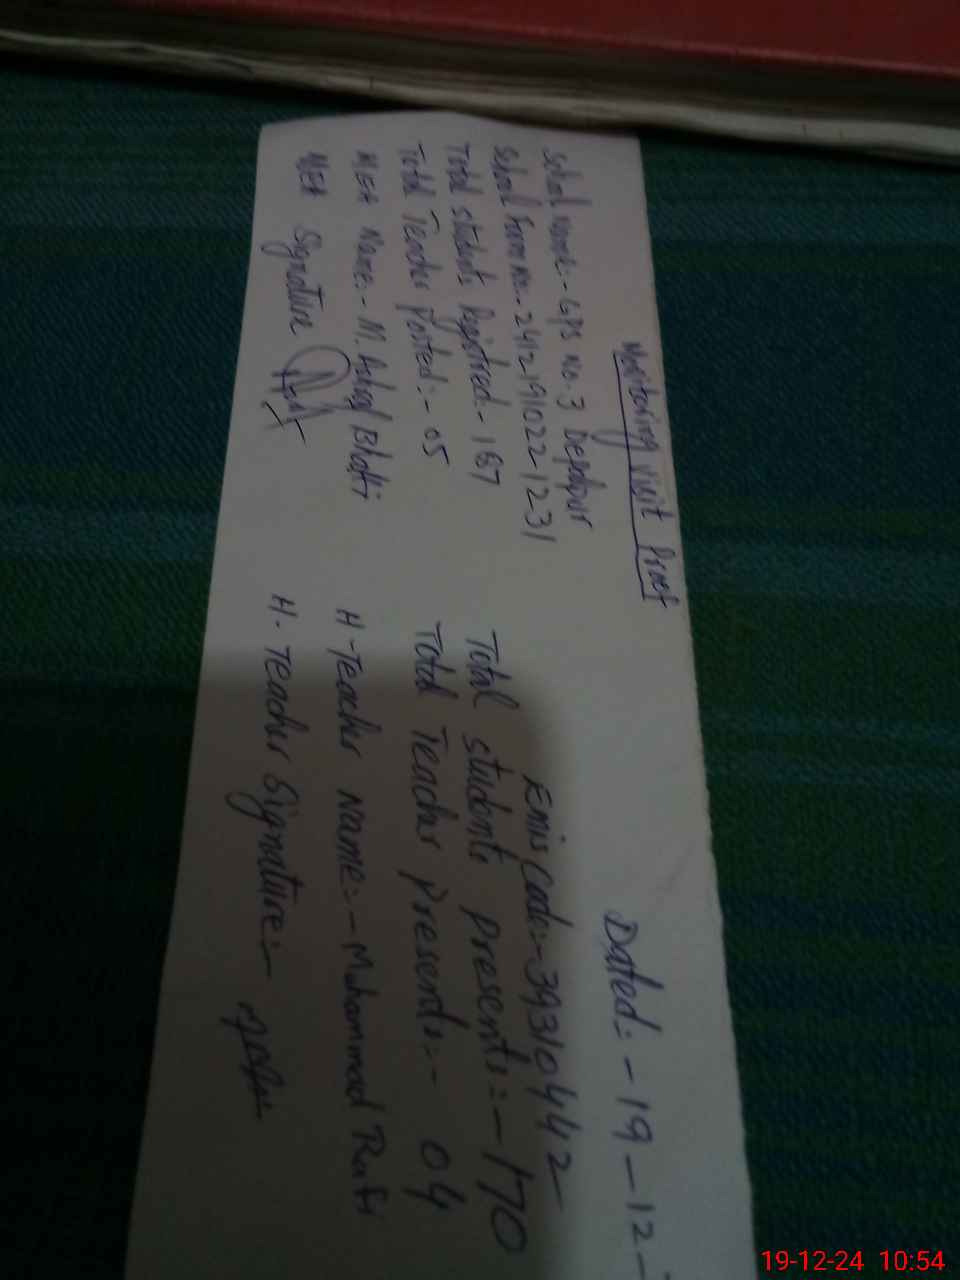 Monitoring Visit Proof
Dated:- 19-12-
School Name:- GPS No. 3 Depalpur
School Form No:- 2412191022-1231
Emis Code:- 39310442
Total students Registered:- 187
Total students presents:- 170
Total Teacher posted:- 05
Total Teacher Presents:- 04
MEA Name:- M. Ashraf Bhatti
H-Teacher Name:- Muhammad Rafi
MEA Signature
H-Teacher Signature:-
19-12-24 10:54